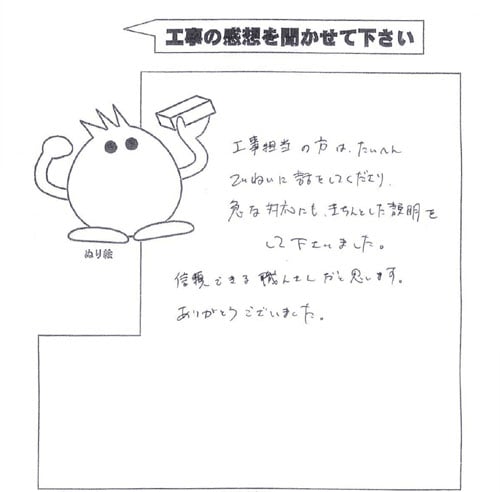 工事の感想を聞かせて下さい
工事担当の方は、たいへん
ていねいに話をしてくださり、
急な対応にも、きちんとした説明を
して下さいました。
ぬり絵
信頼できる職人さんだと思います。
ありがとうございました。